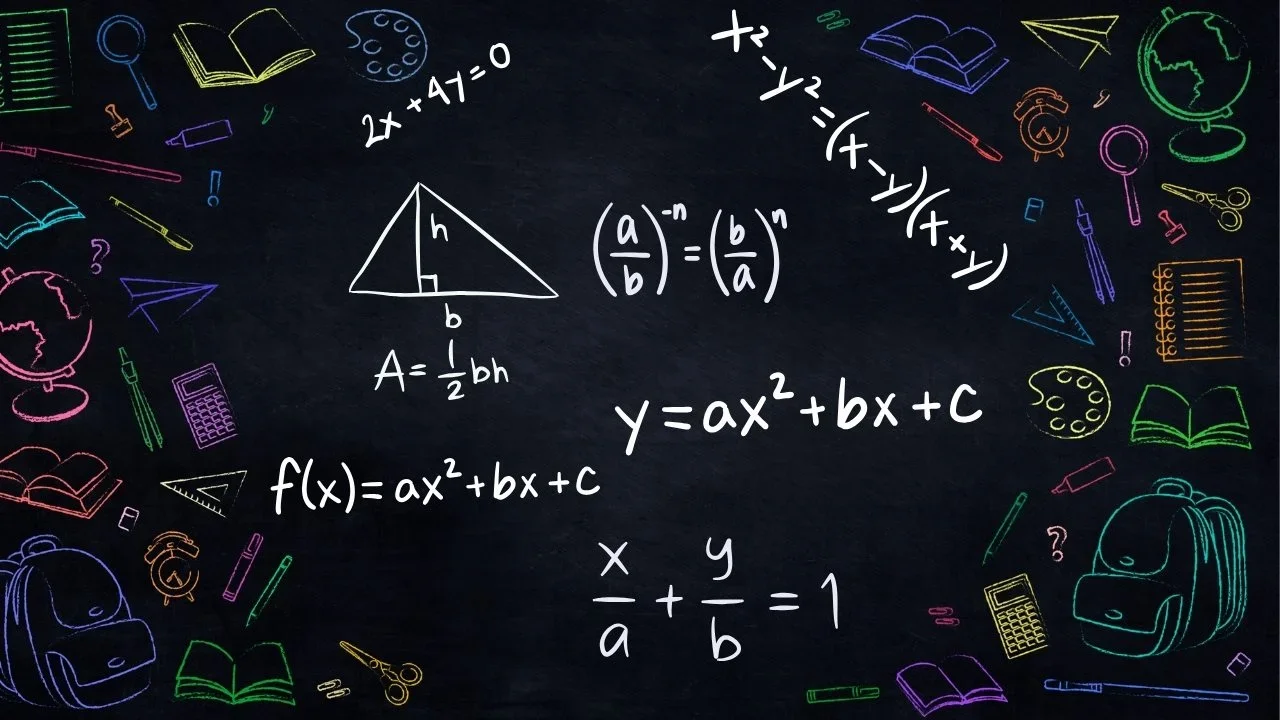 2x + 4y = 0
x² - y² = (x - y)(x + y)
h
b
A = 1/2 bh
(a/b)⁻ⁿ = (b/a)ⁿ
y = ax² + bx + c
f(x) = ax² + bx + c
x/a + y/b = 1